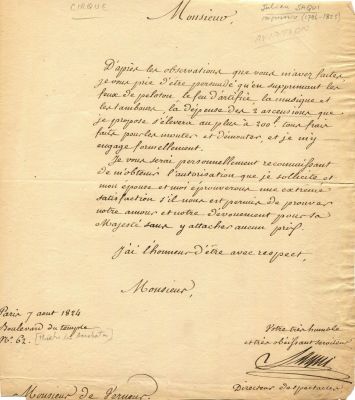 CIRQUE
Julien SAQUI
(1786-1825)
Monsieur,
D'après les observations que vous m'avez faites,
je vous prie d'être persuadé qu'en supprimant les
feux de peloton, le feu d'artifice, la musique et
les tambours, la dépense des 2 ascensions que
je propose s'élevera au plus à 200f. tous frais
faits pour les monter et démonter, et je m'y
engage formellement.
Je vous serai personnellement reconnaissant
de m'obtenir l'autorisation que je sollicite et
mon épouse et moi éprouverons une extrême
satisfaction s'il nous est permis de prouver
notre amour et notre dévouement pour sa
Majesté sans y attacher aucun prix.
J'ai l'honneur d'être avec respect,
Monsieur,
Paris 7 aout 1824
Boulevard du temple
N°. 62.
Votre très humble
et très obéissant serviteur
Saqui
Directeur de spectacles
Monsieur de Verneur.